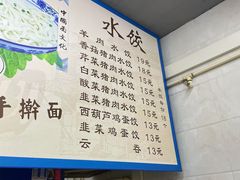 中国面文化
手擀面
水饺
羊肉水饺 19元
香菇猪肉水饺 18元
芹菜猪肉水饺 15元
白菜猪肉水饺 15元
酸菜猪肉水饺 15元
韭菜猪肉水饺 15元
西葫芦鸡蛋饺 13元
韭菜鸡蛋饺 13元
云吞 13元